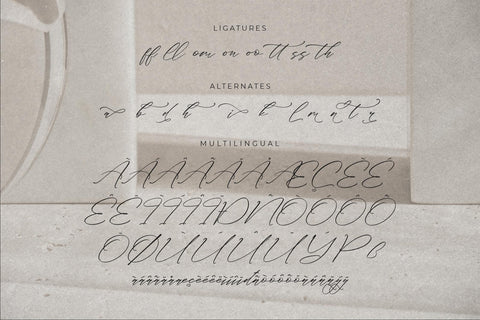 LIGATURES
ff ll om on oo tt ss th
ALTERNATES
a b d h i k l m n t y
MULTILINGUAL
ÀÁÂÃÄÅÆÇÈÉ
ÊËÌÍÎÏÐÑÒÓÔÕ
ÖØÙÚÛÜÝÞß